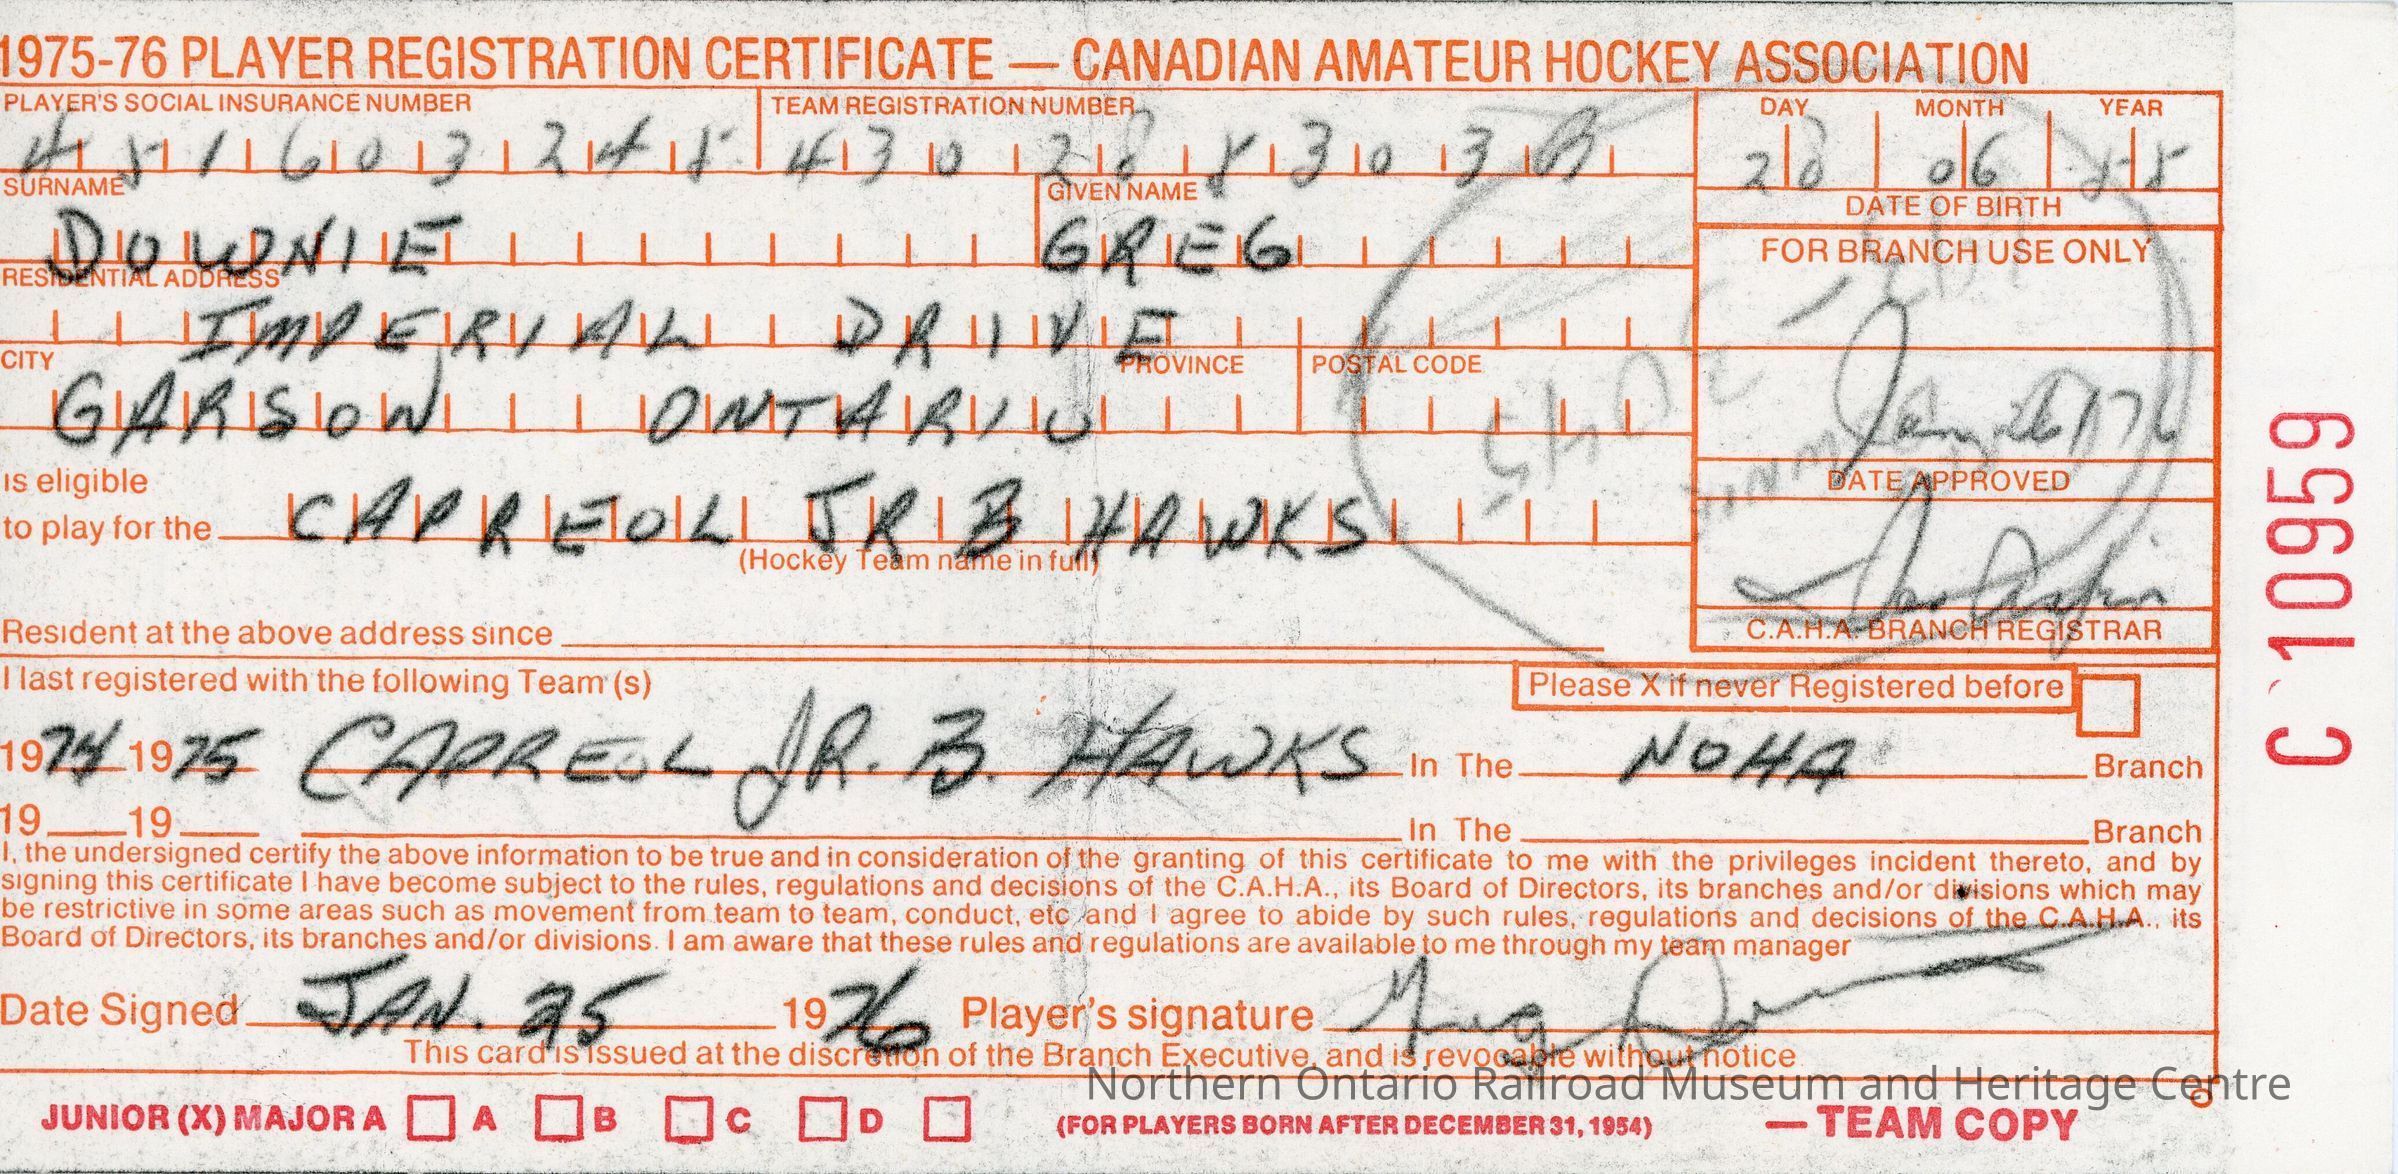 1975-76 PLAYER REGISTRATION CERTIFICATE — CANADIAN AMATEUR HOCKEY ASSOCIATION
PLAYER'S SOCIAL INSURANCE NUMBER TEAM REGISTRATION NUMBER DAY MONTH YEAR
4 5 1 6 0 3 2 4 5 28 06 55
SURNAME GIVEN NAME DATE OF BIRTH
DOWNIE GREG FOR BRANCH USE ONLY
RESIDENTIAL ADDRESS
IMPERIAL DRIVE
CITY PROVINCE POSTAL CODE
GARSON ONTARIO Jan 26/76
is eligible DATE APPROVED
to play for the CAPREOL JR B HAWKS
(Hockey Team name in full)
Resident at the above address since C.A.H.A. BRANCH REGISTRAR
I last registered with the following Team (s) Please X if never Registered before
1974 1975 CAPREOL JR. B. HAWKS In The NOHA Branch
19 19 In The Branch
I, the undersigned certify the above information to be true and in consideration of the granting of this certificate to me with the privileges incident thereto, and by
signing this certificate I have become subject to the rules, regulations and decisions of the C.A.H.A., its Board of Directors, its branches and/or divisions which may
be restrictive in some areas such as movement from team to team, conduct, etc and I agree to abide by such rules, regulations and decisions of the C.A.H.A., its
Board of Directors, its branches and/or divisions. I am aware that these rules and regulations are available to me through my team manager
Date Signed JAN. 25 1976 Player's signature Greg Downie
This card is issued at the discretion of the Branch Executive, and is revocable without notice
Northern Ontario Railroad Museum and Heritage Centre
JUNIOR (X) MAJOR A A B C D (FOR PLAYERS BORN AFTER DECEMBER 31, 1954) — TEAM COPY
C 10959